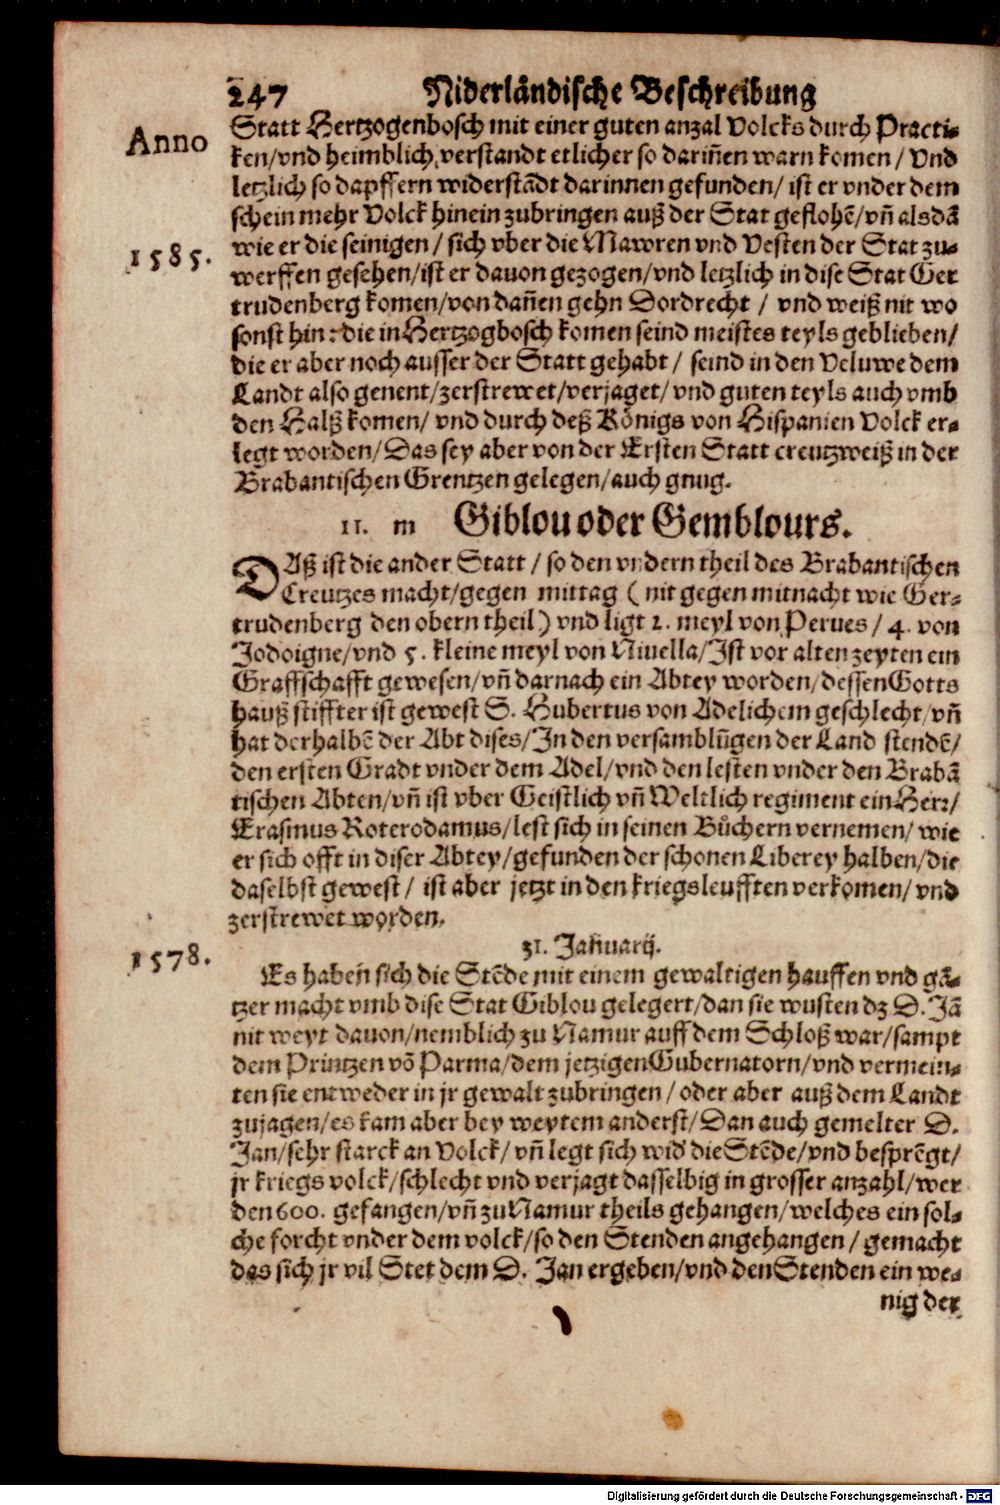 247 Niderlåndische Beschreibung
Anno
Statt Hertzogenbosch mit einer guten anzal Volcks durch Practi-
ken/vnd heimblich verstandt etlicher so dariñen warn komen/ Vnd
letzlich so dapffern widerstãdt darinnen gefunden/ ist er vnder dem
schein mehr Volck hinein zubringen auß der Stat geflohẽ/vñ alsdã
1585.
wie er die seinigen/ sich vber die Mawren vnd Vesten der Stat zu-
werffen gesehen/ist er dauon gezogen/vnd letzlich in dise Stat Ger
trudenberg komen/von dañen gehn Dordrecht / vnd weiß nit wo
sonst hin: die in Hertzogbosch komen seind meistes teyls geblieben/
die er aber noch ausser der Statt gehabt / seind in den Veluwe dem
Landt also genent/zerstrewet/verjaget/vnd guten teyls auch vmb
den Halß komen/ vnd durch deß Kônigs von Hispanien Volck er-
legt worden/Das sey aber von der Ersten Statt creutzweiß in der
Brabantischen Grentzen gelegen/auch gnug.
11. m Giblou oder Gemblours.
DAß ist die ander Statt / so den vndern theil des Brabantischen
Creutzes macht/gegen mittag ( nit gegen mitnacht wie Ger-
trudenberg den obern theil) vnd ligt 1. meyl von Perues / 4. von
Jodoigne/vnd 5. kleine meyl von Niuella/Ist vor alten zeyten ein
Graffschafft gewesen/vñ darnach ein Abtey worden/dessen Gotts
hauß stiffter ist gewest S. Hubertus von Adelichem geschlecht/vñ
hat derhalbẽ der Abt dises/In den versamblũgen der Land stendẽ/
den ersten Gradt vnder dem Adel/vnd den lesten vnder den Brabã
tischen Abten/vñ ist vber Geistlich vñ Weltlich regiment ein Herr/
Erasmus Roterodamus/lest sich in seinen Bůchern vernemen/ wie
er sich offt in diser Abtey/gefunden der schonen Liberey halben/die
daselbst gewest / ist aber jetzt in den kriegsleufften verkomen/vnd
zerstrewet worden.
31. Januarij.
1578.
Es haben sich die Stẽde mit einem gewaltigen hauffen vnd gã-
tzer macht vmb dise Stat Giblou gelegert/dan sie wusten dz D. Jã
nit weyt dauon/nemblich zu Namur auff dem Schloß war/sampt
dem Printzen võ Parma/dem jetzigen Gubernatorn/vnd vermein-
ten sie entweder in jr gewalt zubringen / oder aber auß dem Landt
zujagen/es kam aber bey weytem anderst/Dan auch gemelter D.
Jan/sehr starck an Volck/ vñ legt sich wid' die Stẽde/vnd besprẽgt/
jr kriegs volck/schlecht vnd verjagt dasselbig in grosser anzahl/wer
den 600. gefangen/vñ zu Namur theils gehangen/welches ein sol-
che forcht vnder dem volck/so den Stenden angehangen / gemacht
das sich jr vil Stet dem D. Jan ergeben/vnd den Stenden ein we-
nig der
Digitalisierung gefördert durch die Deutsche Forschungsgemeinschaft - DFG